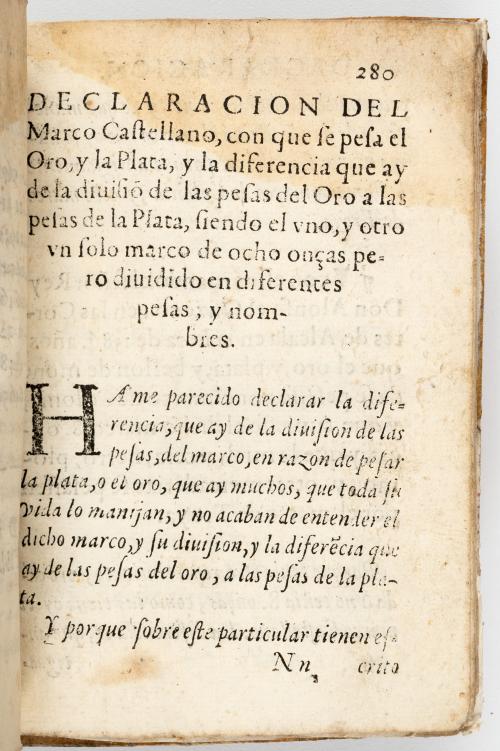 280
DECLARACION DEL
Marco Caſtellano, con que ſe peſa el
Oro, y la Plata, y la diferencia que ay
de la diuiſiõ de las peſas del Oro a las
peſas de la Plata, ſiendo el vno, y otro
vn ſolo marco de ocho onças pe-
ro diuidido en diferentes
peſas, y nom-
bres.
HA me parecido declarar la dife-
rencia, que ay de la diuiſion de las
peſas, del marco, en razon de peſar
la plata, o el oro, que ay muchos, que toda ſu
vida lo manijan, y no acaban de entender el
dicho marco, y ſu diuiſion, y la diferẽcia que
ay de las peſas del oro, a las peſas de la pla-
ta.
Y porque ſobre eſte particular tienen eſ-
Nn crito